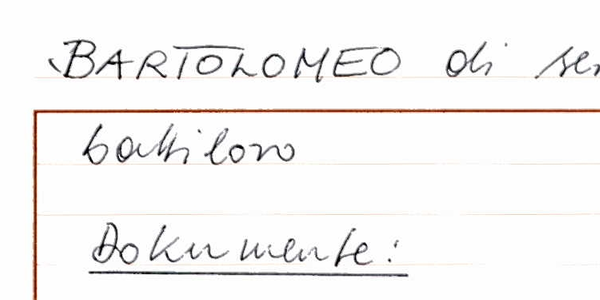 BARTOLOMEO di ser
battiloro
Dokumente: